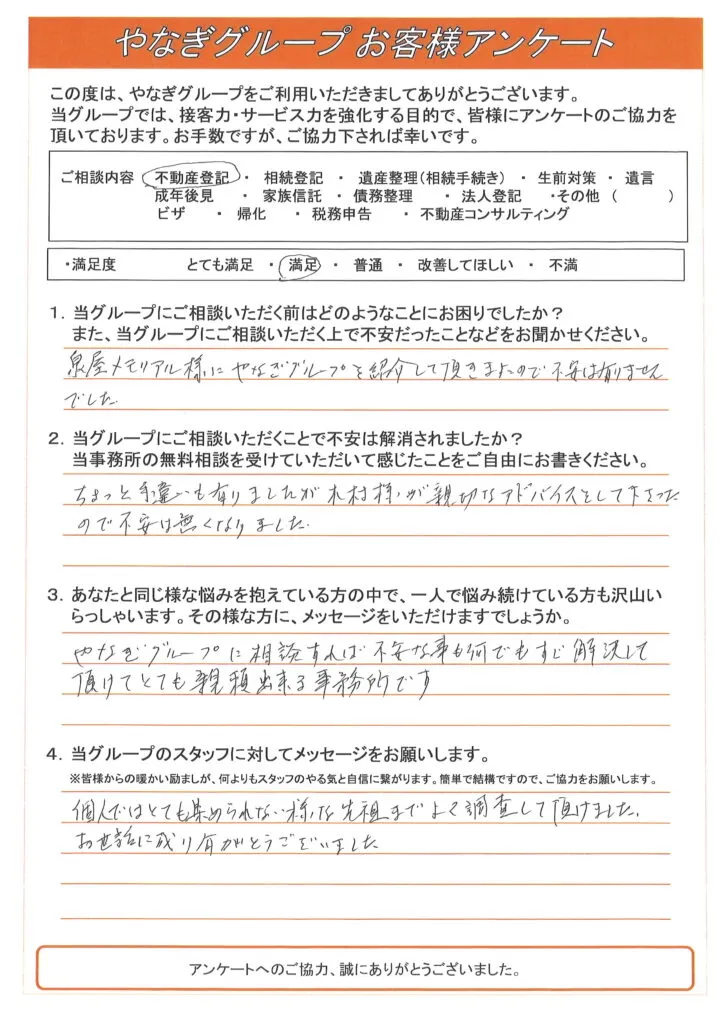 やなぎグループ お客様アンケート
この度は、やなぎグループをご利用いただきましてありがとうございます。
当グループでは、接客力・サービス力を強化する目的で、皆様にアンケートのご協力を
頂いております。お手数ですが、ご協力下されば幸いです。
ご相談内容 不動産登記 ・ 相続登記 ・ 遺産整理(相続手続き) ・ 生前対策 ・ 遺言
成年後見 ・ 家族信託 ・ 債務整理 ・ 法人登記 ・その他 ( )
ビザ ・ 帰化 ・ 税務申告 ・ 不動産コンサルティング
・満足度 とても満足 ・ 満足 ・ 普通 ・ 改善してほしい ・ 不満
1. 当グループにご相談いただく前はどのようなことにお困りでしたか?
また、当グループにご相談いただく上で不安だったことなどをお聞かせください。
泉屋メモリアル様にやなぎグループを紹介して頂きましたので不安は有りません
でした.
2. 当グループにご相談いただくことで不安は解消されましたか?
当事務所の無料相談を受けていただいて感じたことをご自由にお書きください。
ちょっと手違いも有りましたが木村様が親切なアドバイスをして下さった
ので不安は無くなりました.
3. あなたと同じ様な悩みを抱えている方の中で、一人で悩み続けている方も沢山い
らっしゃいます。その様な方に、メッセージをいただけますでしょうか。
やなぎグループに相談すれば不安な事も何でもすぐ解決して
頂けてとても親頼出来る事務所です
4. 当グループのスタッフに対してメッセージをお願いします。
※皆様からの暖かい励ましが、何よりもスタッフのやる気と自信に繋がります。簡単で結構ですので、ご協力をお願いします。
個人ではとても集められない様な先祖までよく調査して頂けました.
お世話に成り有がとうございました
アンケートへのご協力、誠にありがとうございました。